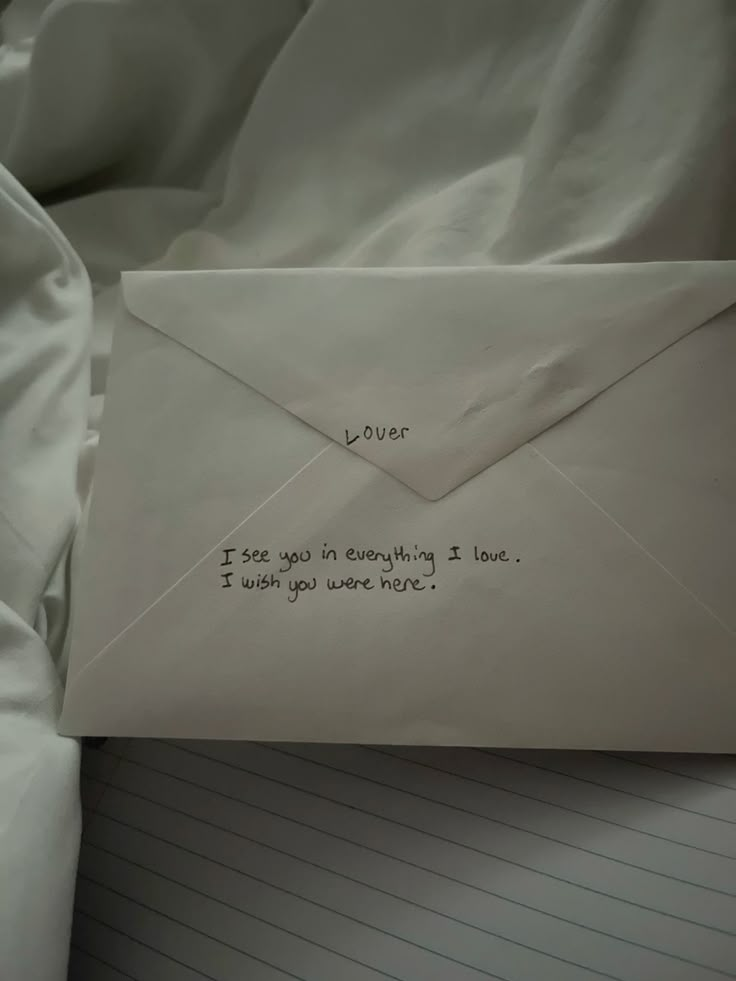 Lover
I see you in everything I love.
I wish you were here.